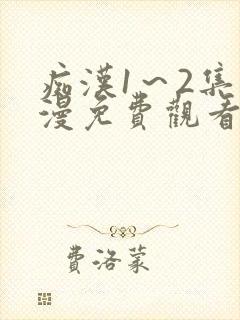 痴漢1～2集
漫免費觀看
費洛蒙